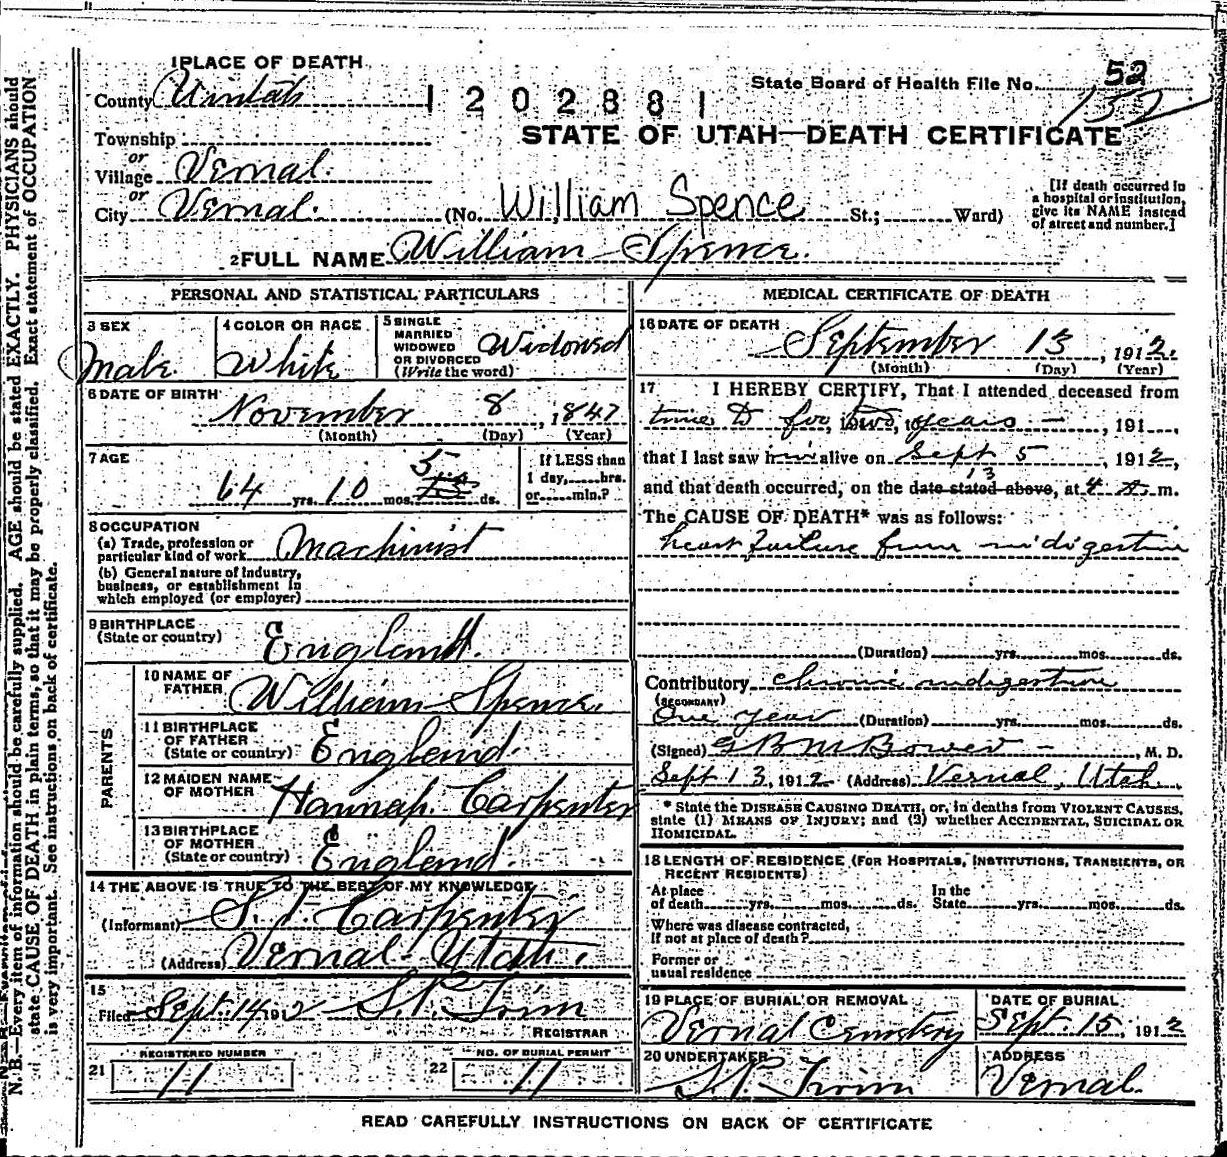 1 PLACE OF DEATH
County Uintah
1202881
State Board of Health File No. 52
152
STATE OF UTAH—DEATH CERTIFICATE
Township
or
Village Vernal.
or
City Vernal. (No. William Spence St.; Ward)
[If death occurred in a hospital or institution, give its NAME instead of street and number.]
2 FULL NAME William Spence.
PERSONAL AND STATISTICAL PARTICULARS
3 SEX
Male.
4 COLOR OR RACE
White
5 SINGLE MARRIED WIDOWED OR DIVORCED (Write the word)
Widowed
6 DATE OF BIRTH
November 8, 1847
(Month) (Day) (Year)
7 AGE
64 yrs. 10 mos. 5 ds.
If LESS than 1 day, hrs. or min.?
8 OCCUPATION
(a) Trade, profession or particular kind of work Machinist
(b) General nature of Industry, business, or establishment in which employed (or employer)
9 BIRTHPLACE
(State or country) England.
PARENTS
10 NAME OF FATHER William Spence.
11 BIRTHPLACE OF FATHER (State or country) England.
12 MAIDEN NAME OF MOTHER Hannah Carpenter
13 BIRTHPLACE OF MOTHER (State or country) England.
14 THE ABOVE IS TRUE TO THE BEST OF MY KNOWLEDGE
(Informant) Carpenter
(Address) Vernal Utah.
15
Filed Sept. 14 1912
REGISTRAR
REGISTERED NUMBER
21 11
NO. OF BURIAL PERMIT
22 11
MEDICAL CERTIFICATE OF DEATH
16 DATE OF DEATH
September 13, 1912.
(Month) (Day) (Year)
17 I HEREBY CERTIFY, That I attended deceased from
time to for two years, 191
that I last saw him alive on Sept 5, 1912,
and that death occurred, on the date stated above, at 4 A. m.
13
The CAUSE OF DEATH* was as follows:
heart failure from indigestion
(Duration) yrs. mos. ds.
Contributory chronic indigestion
(SECONDARY)
One year (Duration) yrs. mos. ds.
(Signed) M. D.
Sept 13, 1912 (Address) Vernal, Utah
* State the DISEASE CAUSING DEATH, or, in deaths from VIOLENT CAUSES, state (1) MEANS OF INJURY; and (2) whether ACCIDENTAL, SUICIDAL OR HOMICIDAL.
18 LENGTH OF RESIDENCE (FOR HOSPITALS, INSTITUTIONS, TRANSIENTS, OR RECENT RESIDENTS)
At place of death yrs. mos. ds. In the State yrs. mos. ds.
Where was disease contracted, if not at place of death?
Former or usual residence
19 PLACE OF BURIAL OR REMOVAL
Vernal Cemetery
DATE OF BURIAL
Sept. 15, 1912
20 UNDERTAKER
ADDRESS
Vernal.
READ CAREFULLY INSTRUCTIONS ON BACK OF CERTIFICATE
N. B.—Every item of information should be carefully supplied. AGE should be stated EXACTLY. PHYSICIANS should
state CAUSE OF DEATH in plain terms, so that it may be properly classified. Exact statement of OCCUPATION
is very important. See instructions on back of certificate.